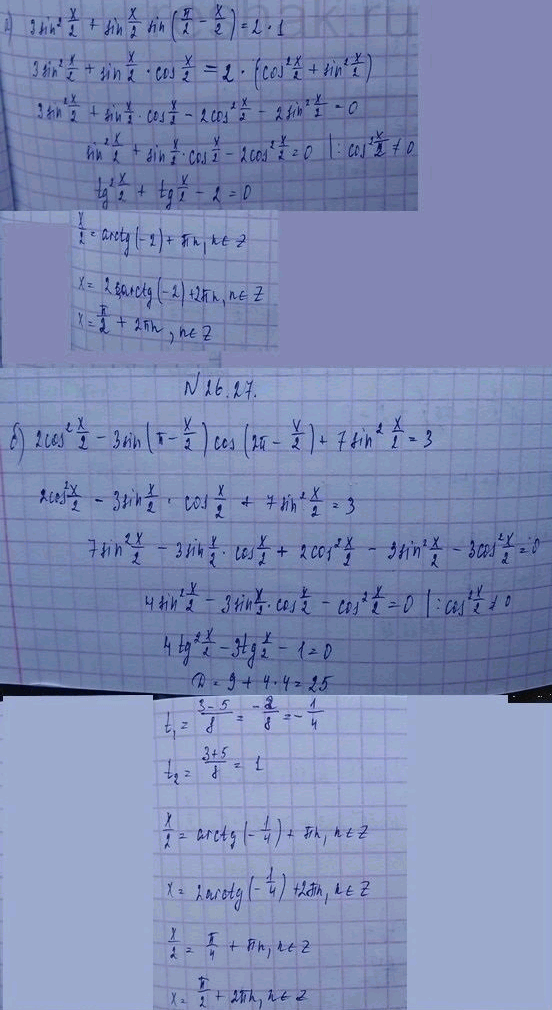 а) 3sin² x/2 + sin x/2 sin (π/2 − x/2) = 2 · 1
3sin² x/2 + sin x/2 · cos x/2 = 2 · (cos² x/2 + sin² x/2)
3sin² x/2 + sin x/2 · cos x/2 − 2cos² x/2 − 2sin² x/2 = 0
sin² x/2 + sin x/2 · cos x/2 − 2cos² x/2 = 0 |: cos² x/2 ≠ 0
tg² x/2 + tg x/2 − 2 = 0
x/2 = arctg(−2) + πn, n ∈ Z
x = 2arctg(−2) + 2πn, n ∈ Z
x = π/2 + 2πn, n ∈ Z
N 26.27.
б) 2cos² x/2 − 3sin (π − x/2) cos (2π − x/2) + 7sin² x/2 = 3
2cos² x/2 − 3sin x/2 · cos x/2 + 7sin² x/2 = 3
7sin² x/2 − 3sin x/2 · cos x/2 + 2cos² x/2 − 3sin² x/2 − 3cos² x/2 = 0
4sin² x/2 − 3sin x/2 · cos x/2 − cos² x/2 = 0 |: cos² x/2 ≠ 0
4tg² x/2 − 3tg x/2 − 1 = 0
D = 9 + 4 · 4 = 25
t₁ = (3−5)/8 = −2/8 = −1/4
t₂ = (3+5)/8 = 1
x/2 = arctg(−1/4) + πn, n ∈ Z
x = 2arctg(−1/4) + 2πn, n ∈ Z
x/2 = π/4 + πn, n ∈ Z
x = π/2 + 2πn, n ∈ Z